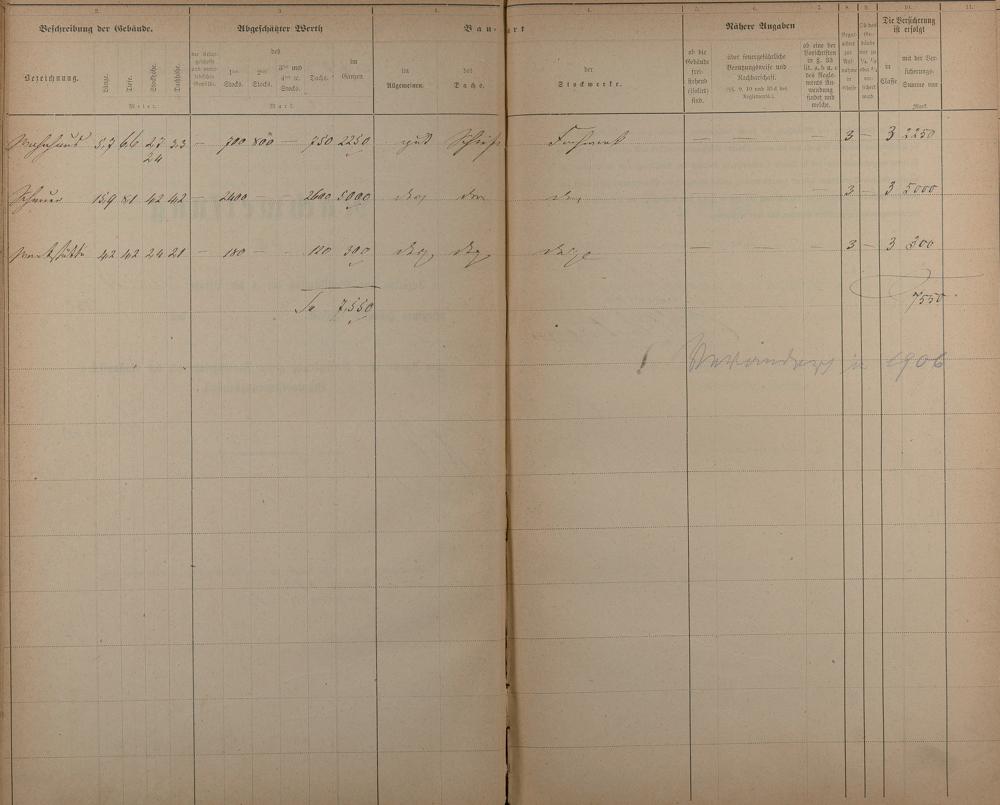 2. 3. 4. 4. 5. 6. 7. 8. 9. 10. 11.
Beschreibung der Gebäude. Abgeschätzter Werth Bau- art Nähere Angaben Die Versicherung ist erfolgt
Bezeichnung. Länge. Tiefe. Stockhöhe. Dachhöhe.
Meter.
des
1ten Stocks. 2ten Stocks. 3ten und 4ten u. Stocks. Dachs. im Ganzen
Mark.
im Allgemeinen. des Dachs. der Stockwerke.
ob die Gebäude frei-stehend (isolirt) sind.
über feuergefährliche Benutzungsweise und Nachbarschaft.
ob eine der Vorschriften in § 33 lit. a, b u. c des Reglements Anwendung findet und welche.
in Classe mit der Versicherungs-Summe von
Mark
Wohnhaus 5,7 6,6 2,7 3,3 — 700 800 — 750 2250 gut Schiefer Fachwerk — — — 3 — 3 2250
2,4
Scheuer 15,9 8,1 4,2 4,2 — 2400 2600 5000 — 3 — 3 5000
Werkstätte 4,2 4,2 2,4 2,1 — 180 — 120 300 desgl. — — — 3 — 3 300
Sa 7,550 7550
Verändert in 1906